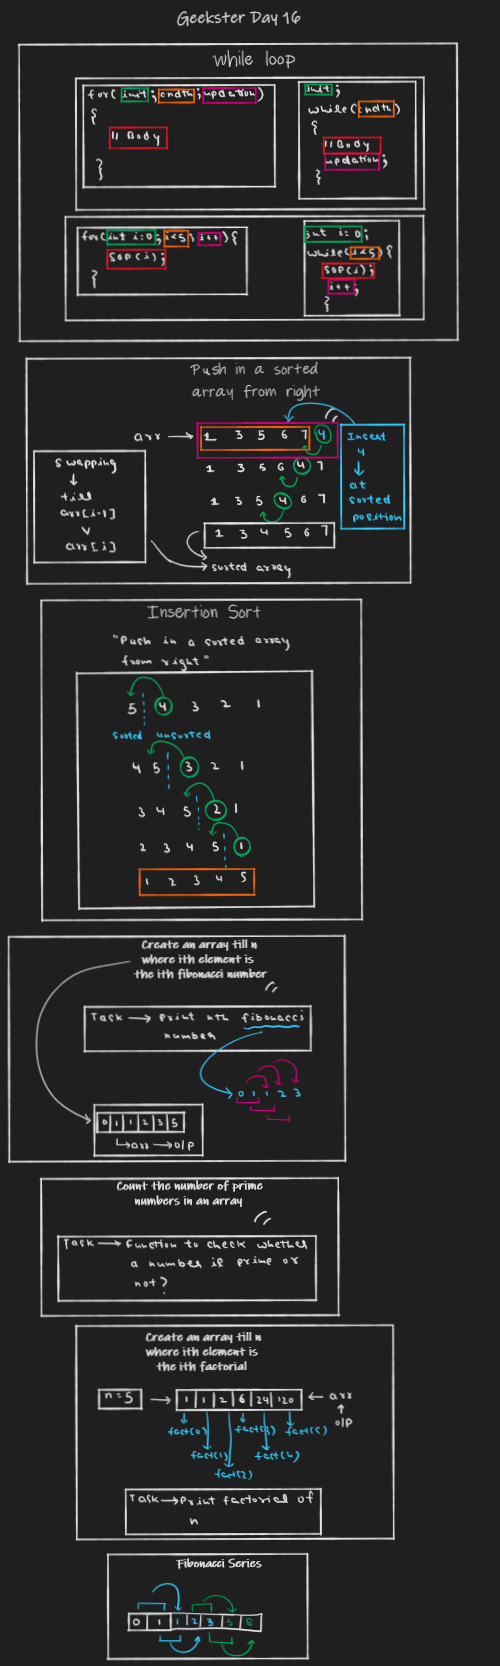 Geekster Day 16
While loop
for( init ; cndtn ; updation )
{
// Body
}
init ;
while( cndtn )
{
// Body
updation ;
}
for( int i=0 ; i<5 ; i++ ) {
SOP(i);
}
int i=0;
while( i<5 ) {
SOP(i);
i++;
}
Push in a sorted
array from right
arr
1 3 5 6 7 4
1 3 5 6 4 7
1 3 5 4 6 7
1 3 4 5 6 7
sorted array
Swapping
till
arr[i-1]
>
arr[i]
Insert
4
at
sorted
position
Insertion Sort
"Push in a sorted array
from right"
5 4 3 2 1
Sorted unsorted
4 5 3 2 1
3 4 5 2 1
2 3 4 5 1
1 2 3 4 5
Create an array till n
where ith element is
the ith fibonacci number
Task → Print nth fibonacci
number
0 1 1 2 3
0 1 1 2 3 5
arr → O/P
Count the number of prime
numbers in an array
Task → Function to check whether
a number is prime or
not?
Create an array till n
where ith element is
the ith factorial
n=5 → 1 1 2 6 24 120 ← arr
O/P
fact(0) fact(3) fact(5)
fact(1) fact(4)
fact(2)
Task → Print factorial of
n
Fibonacci Series
0 1 1 2 3 5 8